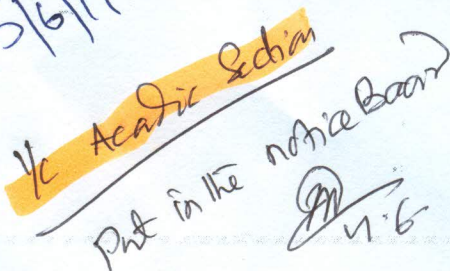 /6/1
I/c Acadic Section
put in the notice Board
4.6